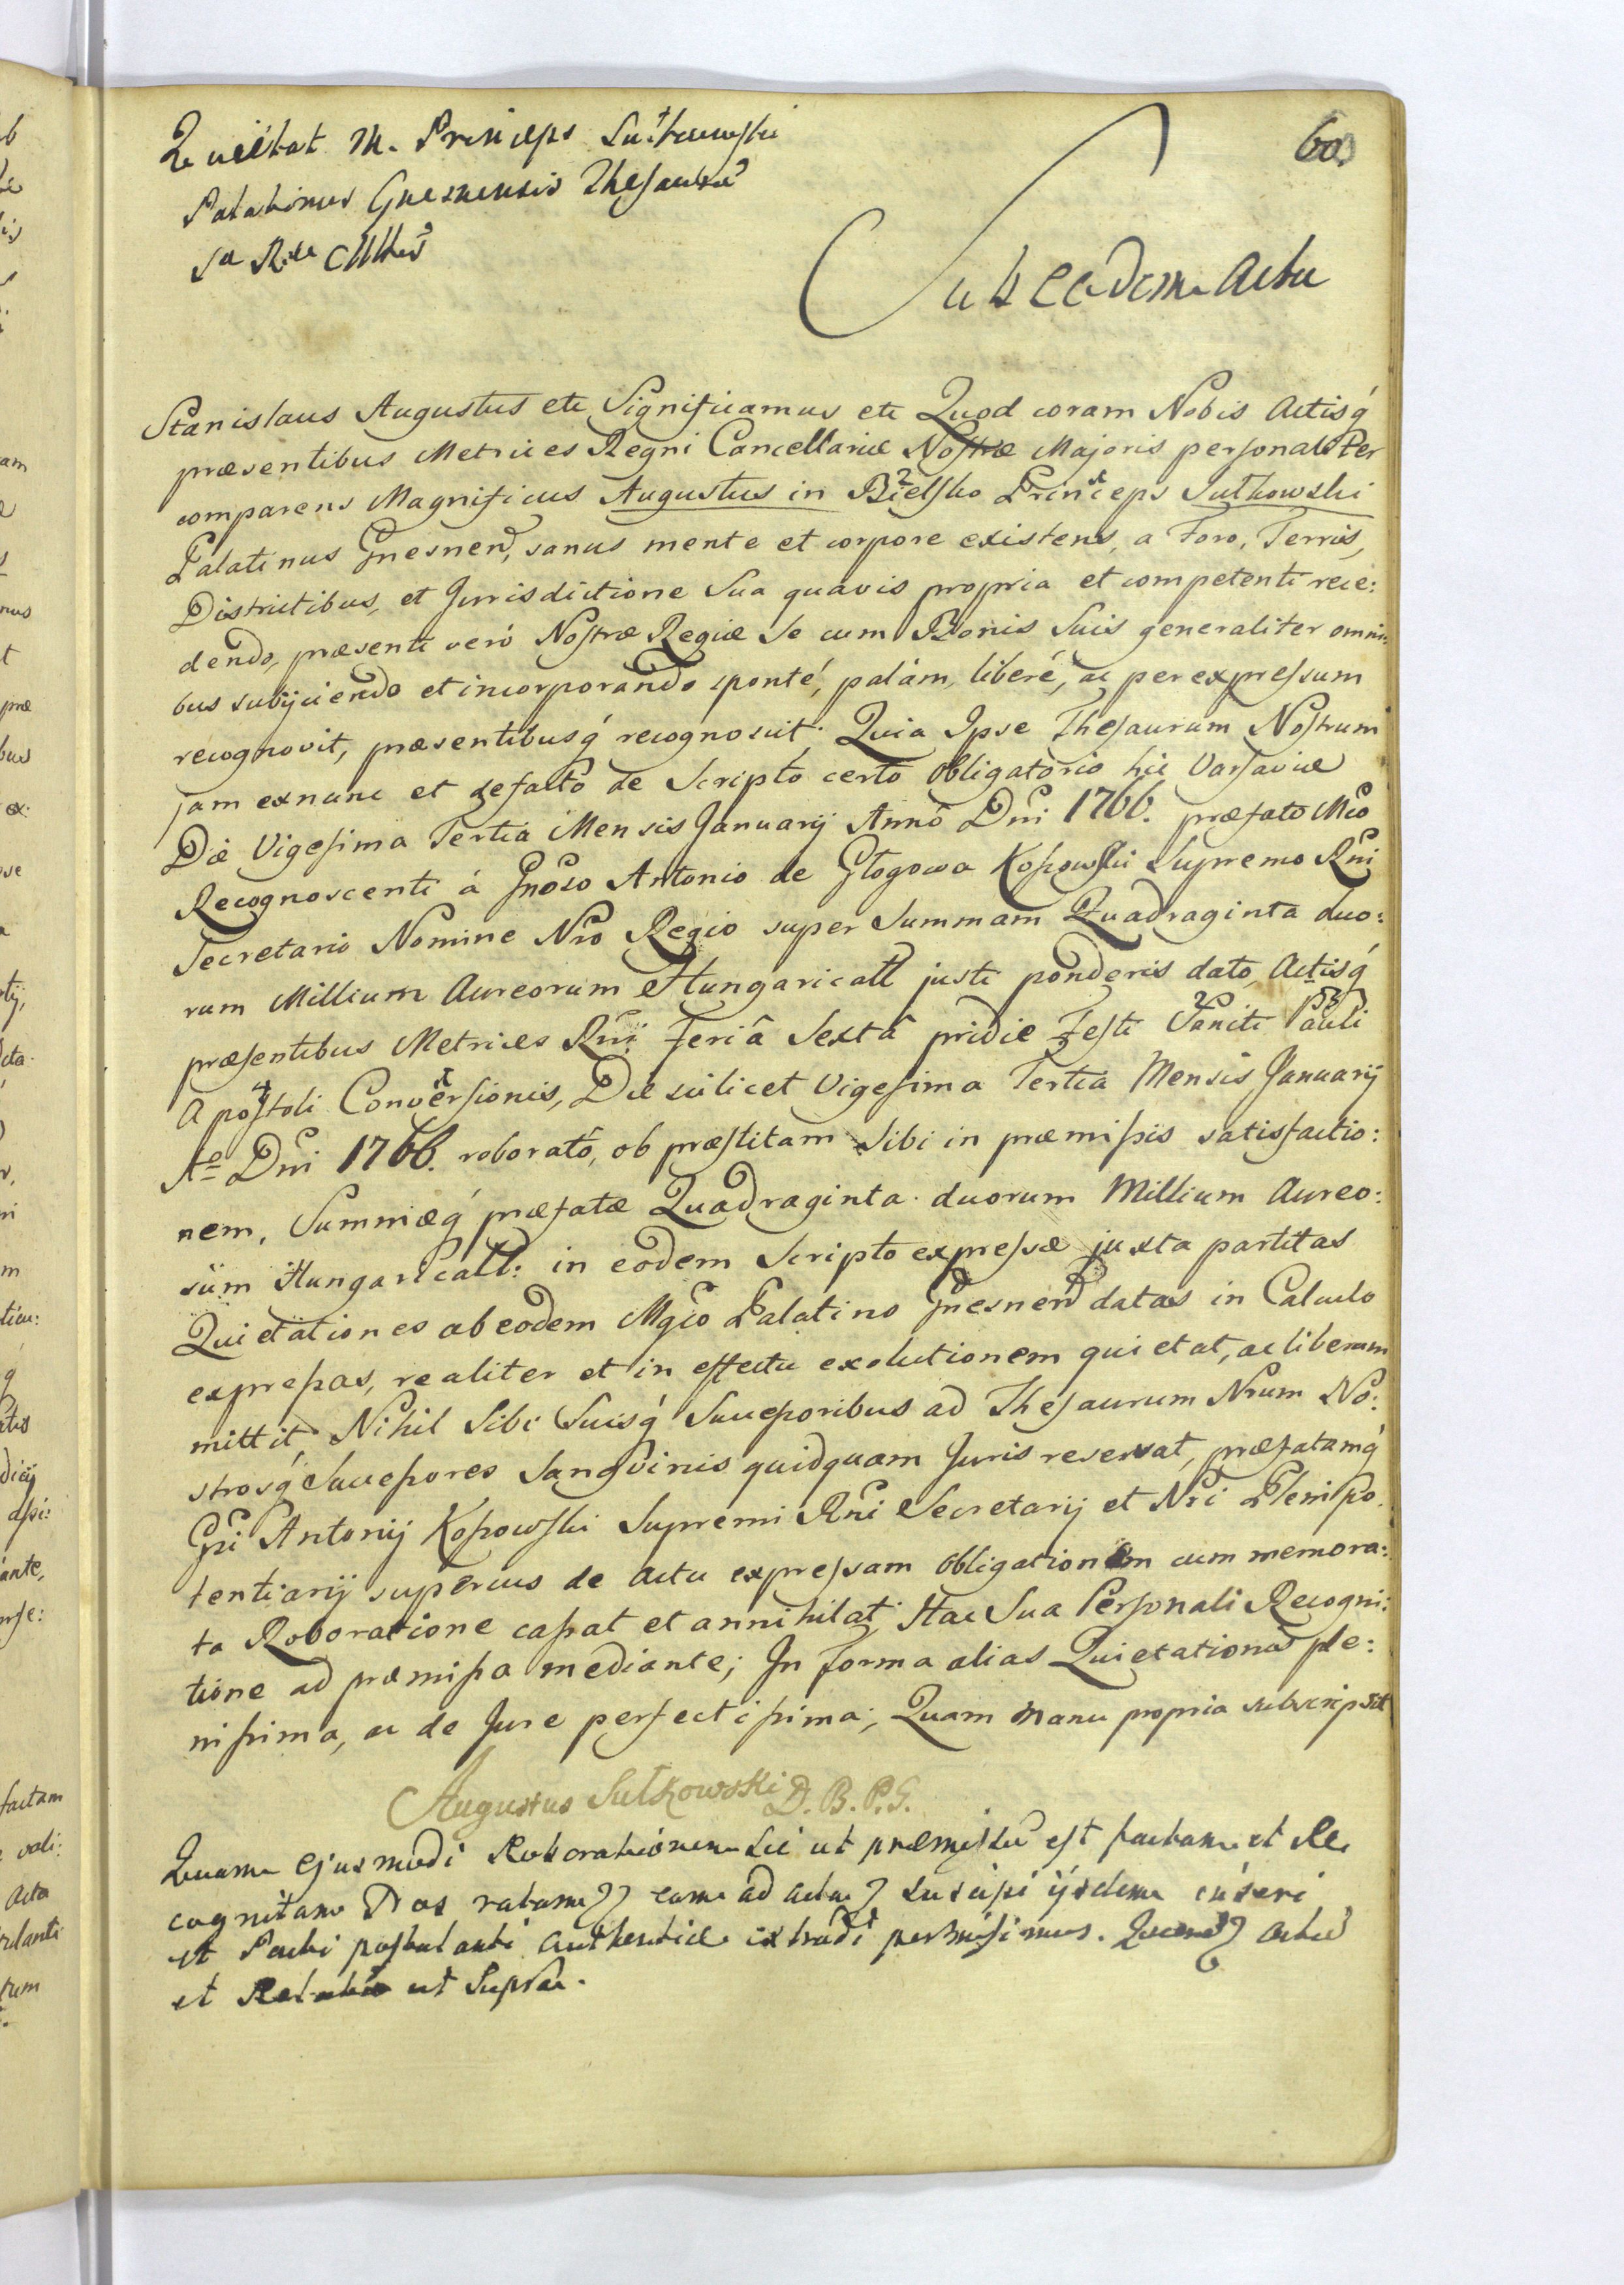 Quietat M. Princeps Sułkowski
60
Palatinus Gnesnensis Thesaurū
Sae Rae Mttis
Sub eodem Actu
Stanislaus Augustus etc Significamus etc Quod coram Nobis Actisq́
præsentibus Metrices Regni Cancellariæ Nostræ Majoris personaliter
comparens Magnificus Augustus in Bielsko Princeps Sułkowski
Palatinus Gnesnen, sanus mente et corpore existens, a Foro, Terris,
Districtibus, et Jurisdictione Sua quavis propria et competenti rece:
dendo, præsenti veró Nostræ Regiæ Se cum Bonis Suis generaliter omni:
bus subijciendo et incorporando sponté, palám, liberé, ac per expressum
recognovit, præsentibusq́ recognoscit. Quia Ipse Thesaurum Nostrum
jam exnunc et defacto de Scripto certo Obligatorio hic Varsaviæ
Die Vigesima Tertia Mensis Januarij Anno Dni 1766. præfato Mco
Recognoscenti á Gnoso Antonio de Głogowa Kossowski Supremo Rni
Secretario Nomine Nro Regio super Summam Quadraginta duo:
rum Millium Aureorum Hungaricall justi ponderis dato, Actisq́
præsentibus Metrices Rni Feriâ Sextâ pridie Festi Sancti Pauli
Apostoli Conversionis, Die scilicet Vigesima Tertia Mensis Januarij
Ao Dni 1766. roborato, ob præstitam Sibi in præmissis satisfactio:
nem, Summæq́ præfatæ Quadraginta duorum Millium Aureo:
rüm Hungaricall: in eodem Scripto expressæ juxta partitas
Quietationes ab eodem Mgco Palatino Gnesnen datas in Calculo
expressas, realiter et in effectu exolutionem quietat, ac liberum
mittit, Nihil Sibi Suisq́ Successoribus ad Thesaurum Nrum No:
strosq́ Successores Sangvinis quidquam Juris reservat, præfatamq́
Gsi Antonij Kossowski Supremi Rni Secretarij et Nri Plenipo:
tentiarij superius de actu expressam Obligationem cum memora:
ta Roboratione cassat et annihilat, Hac Sua Personali Recogni:
tione ad præmissa mediante; In Forma alias Quietationis ple:
nissima, ac de Jure perfectissima; Quam manu propria subscripsit
Augustus Sułkowski D. B. P. G.
Quam ejusmodi Roborationem sic ut præmissũ est factam et Re
cognitam Nos ratam eam ad acta suscipi ijsdem inseri
et Parti postulanti authentice extradi permisimus. actũ
et ut supra.